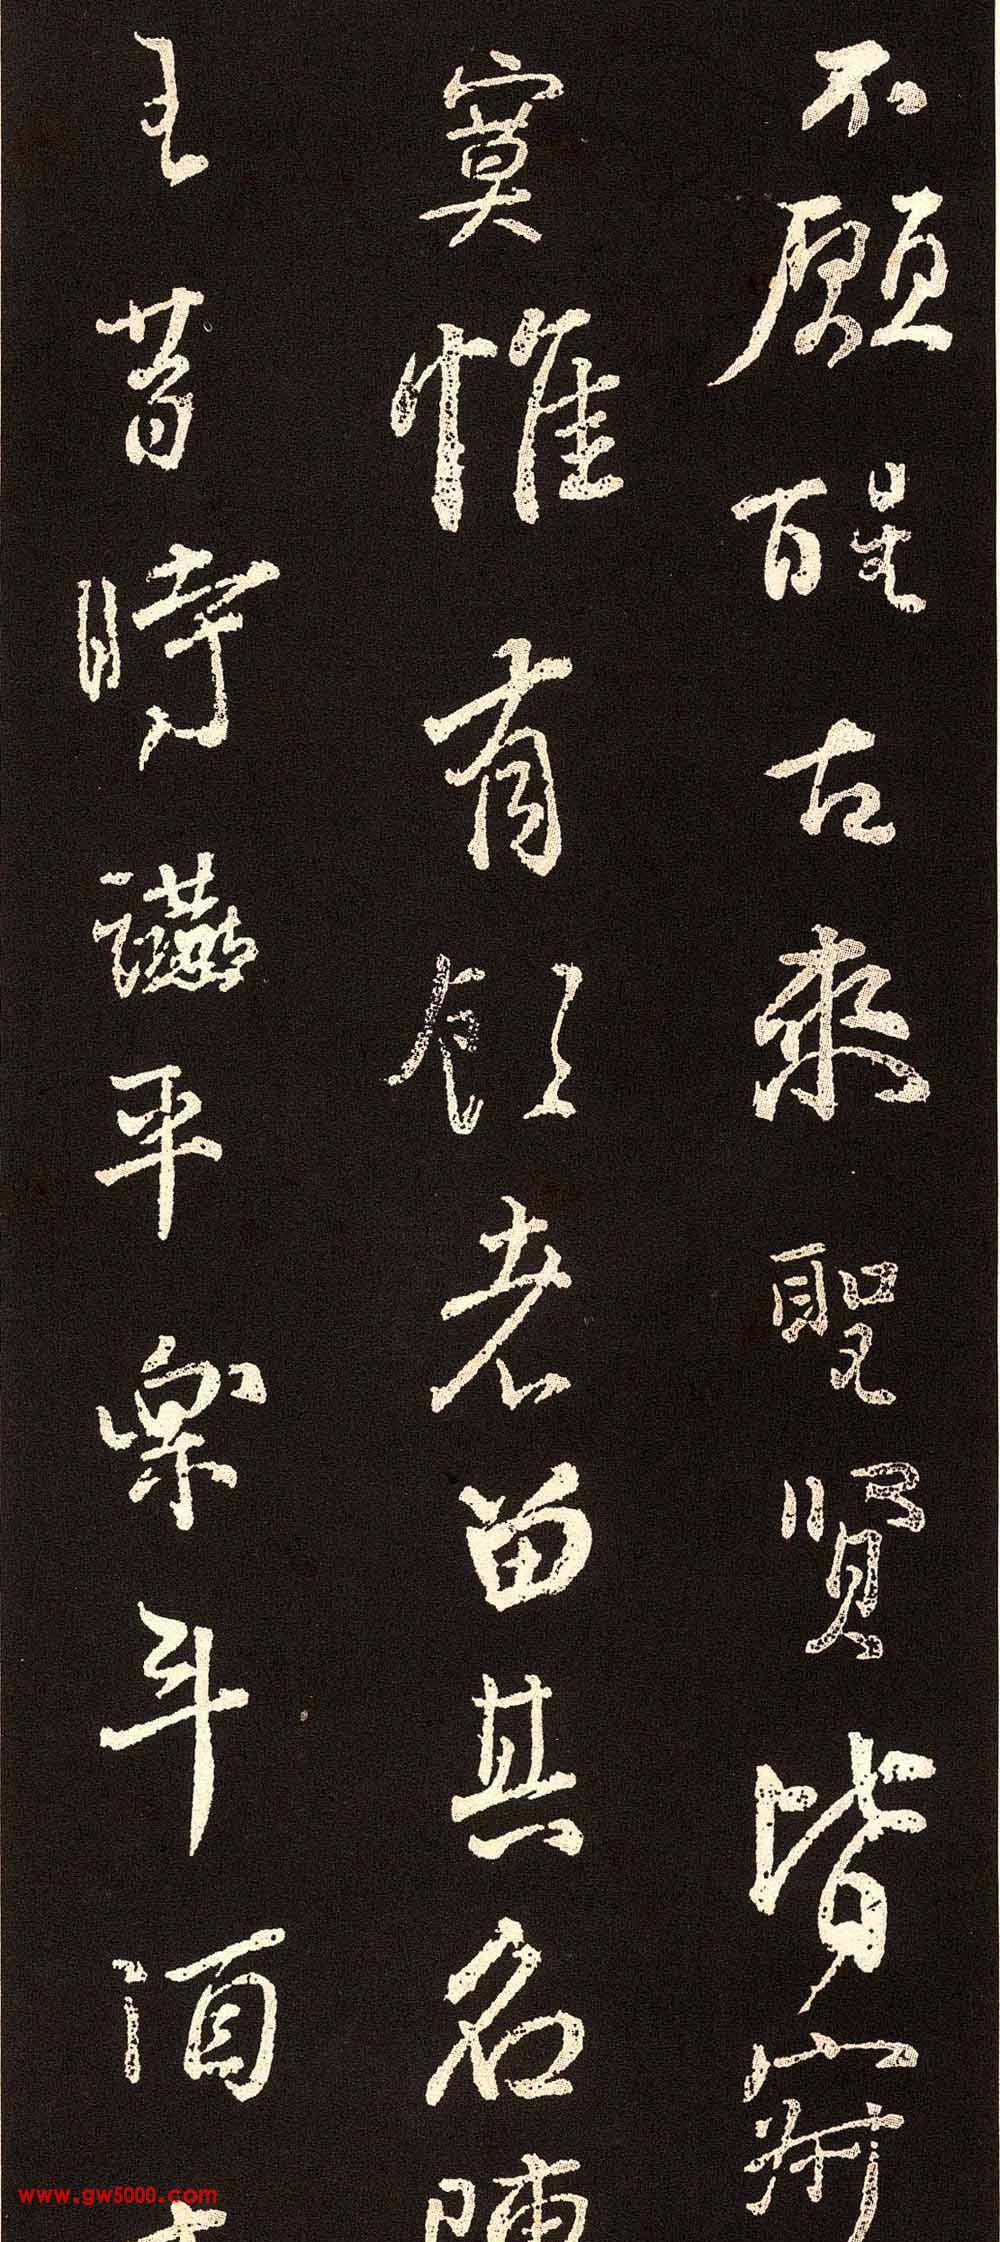 不願醒古來聖賢皆寂
寞惟有飲者留其名陳
王昔時讌平樂斗酒
www.gw5000.com